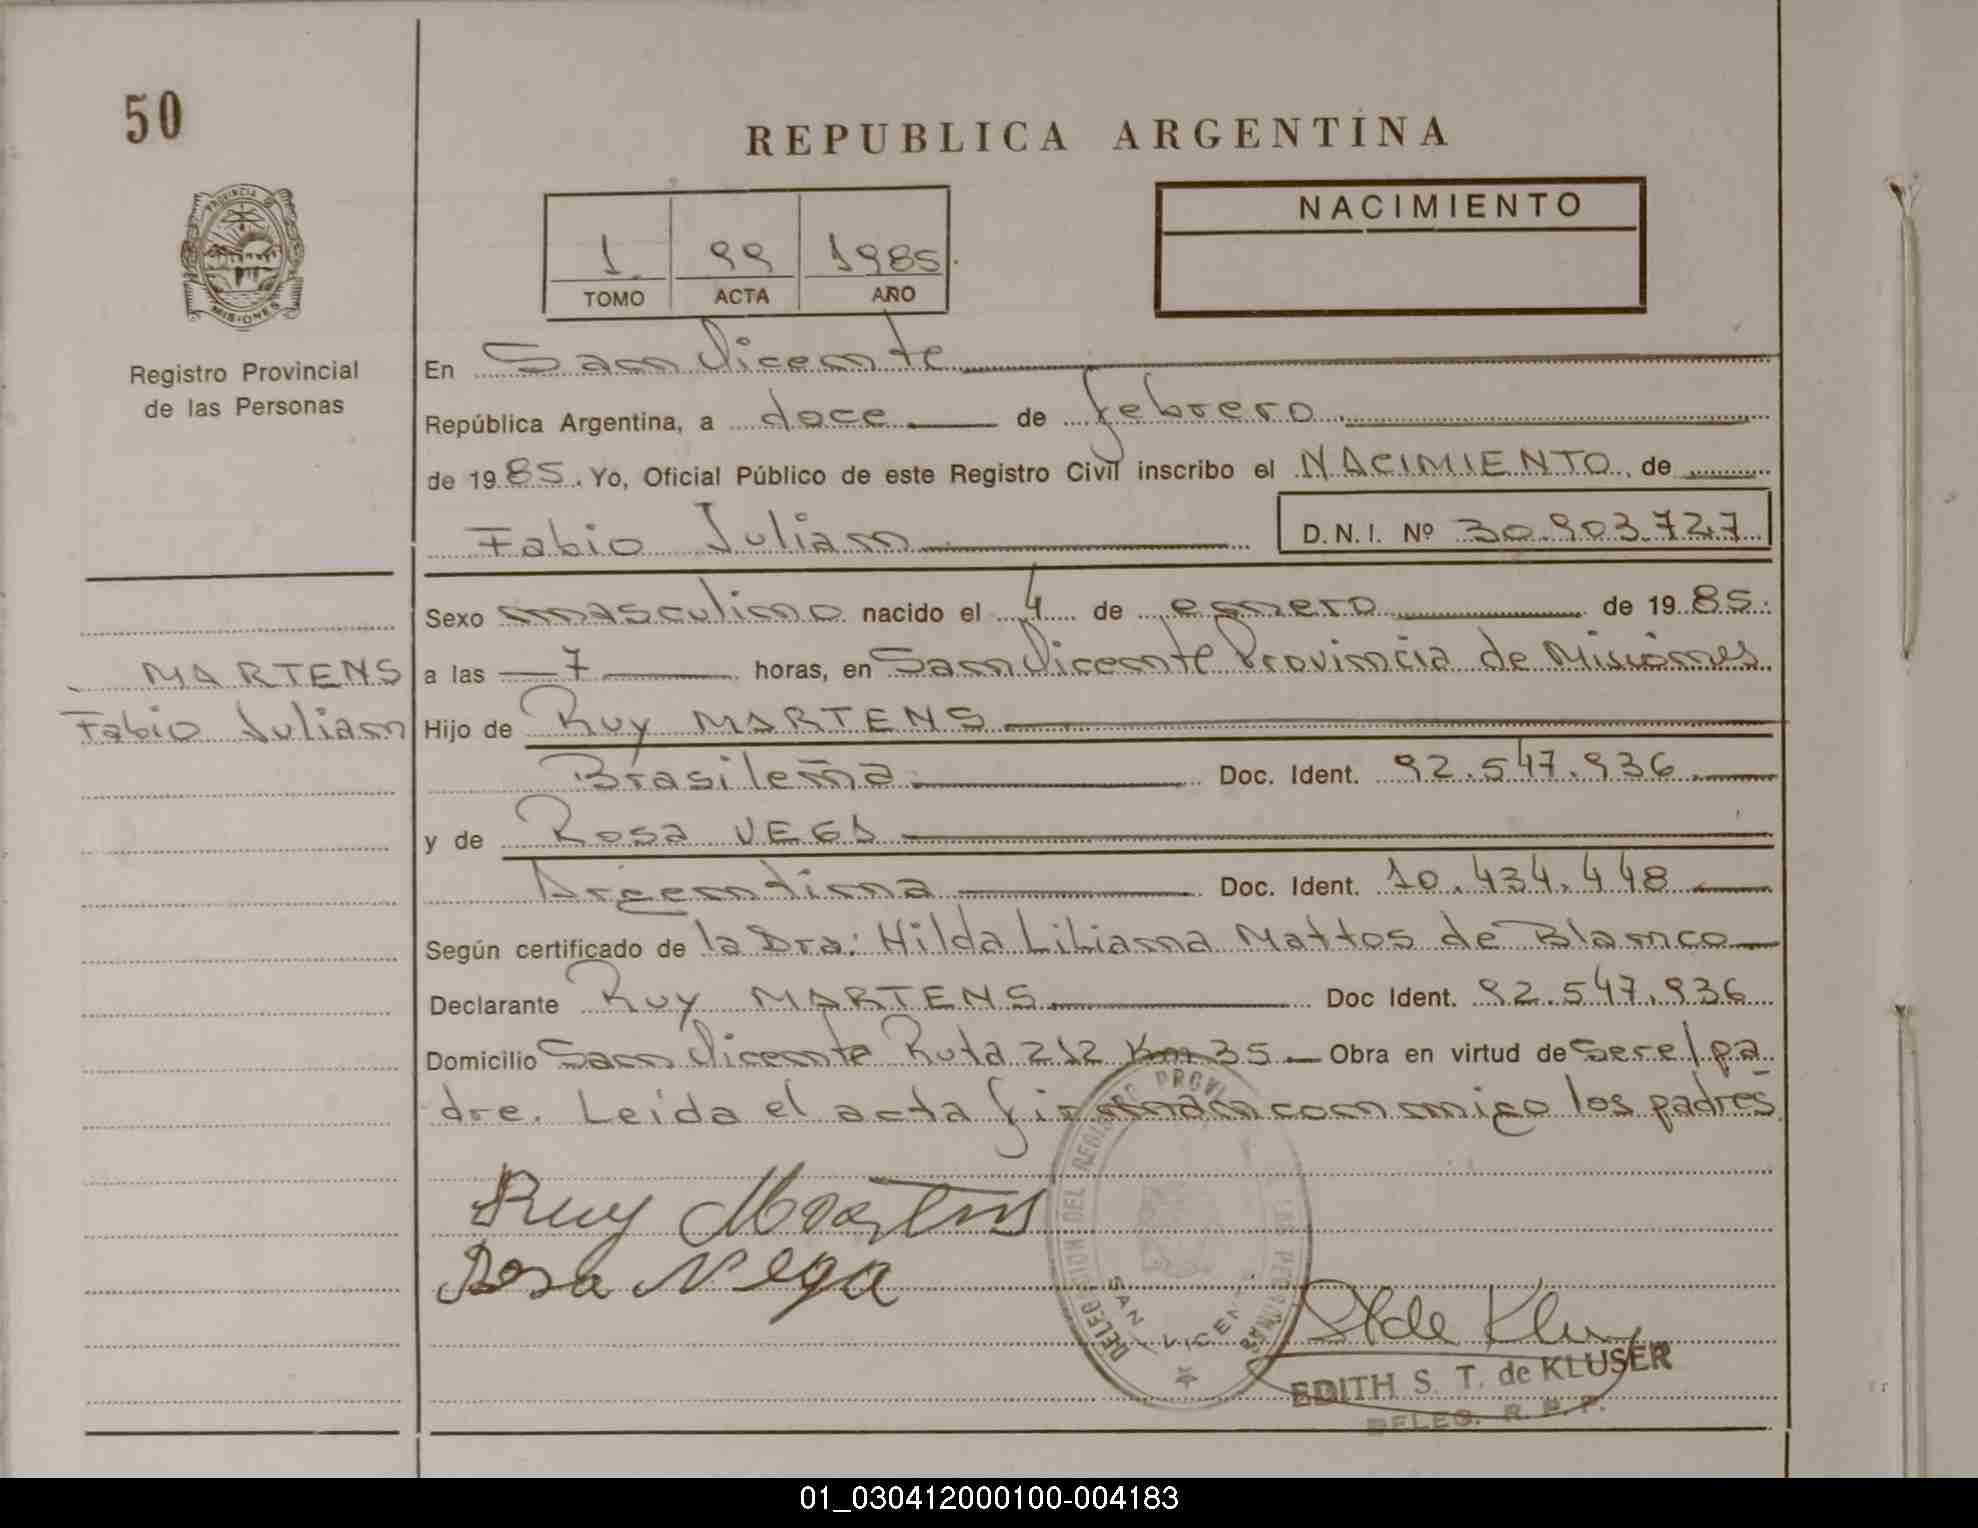 50
REPUBLICA ARGENTINA
PROVINCIA DE
MISIONES
Registro Provincial
de las Personas
1 99 1985
TOMO ACTA AÑO
NACIMIENTO
En San Vicente
República Argentina, a doce de febrero
de 1985. Yo, Oficial Público de este Registro Civil inscribo el NACIMIENTO de
Fabio Julian D.N.I. Nº 30.903.727
MARTENS
Fabio Julian
Sexo masculino nacido el 4 de enero de 1985.
a las 7 horas, en San Vicente Provincia de Misiones
Hijo de Ruy MARTENS
Brasileña Doc. Ident. 92.547.936
y de Rosa VEGA
Argentina Doc. Ident. 10.434.448
Según certificado de la Dra: Hilda Liliana Mattos de Blanco
Declarante Ruy MARTENS Doc Ident. 92.547.936
Domicilio San Vicente Ruta 212 Km 35 Obra en virtud de ser el pa
dre. Leida el acta firman conmigo los padres
Ruy Martens
Rosa Vega
DELEGACION DEL REGISTRO PROVINCIAL DE LAS PERSONAS
SAN VICENTE
EDITH S. T. de KLUSER
DELEG. R. P. P.
01_030412000100-004183